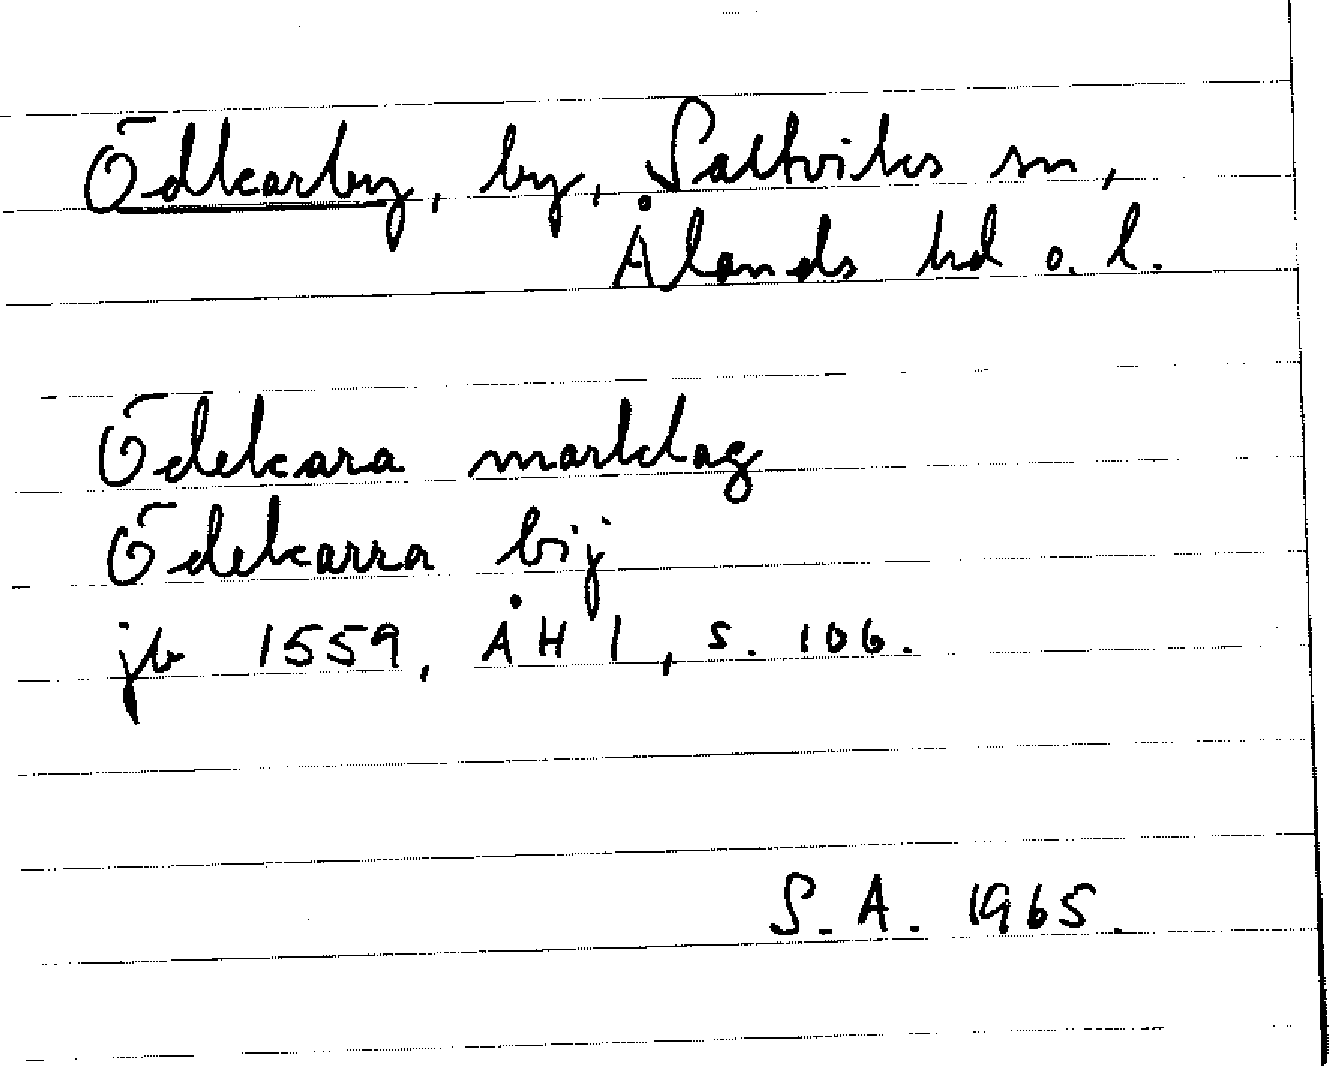 Ödkarby, by, Saltviks sn,
Ålands hd o. l.
Ödekara marklag
Ödekarra bij
jb 1559, ÅH I, s. 106.
S. A. 1965.